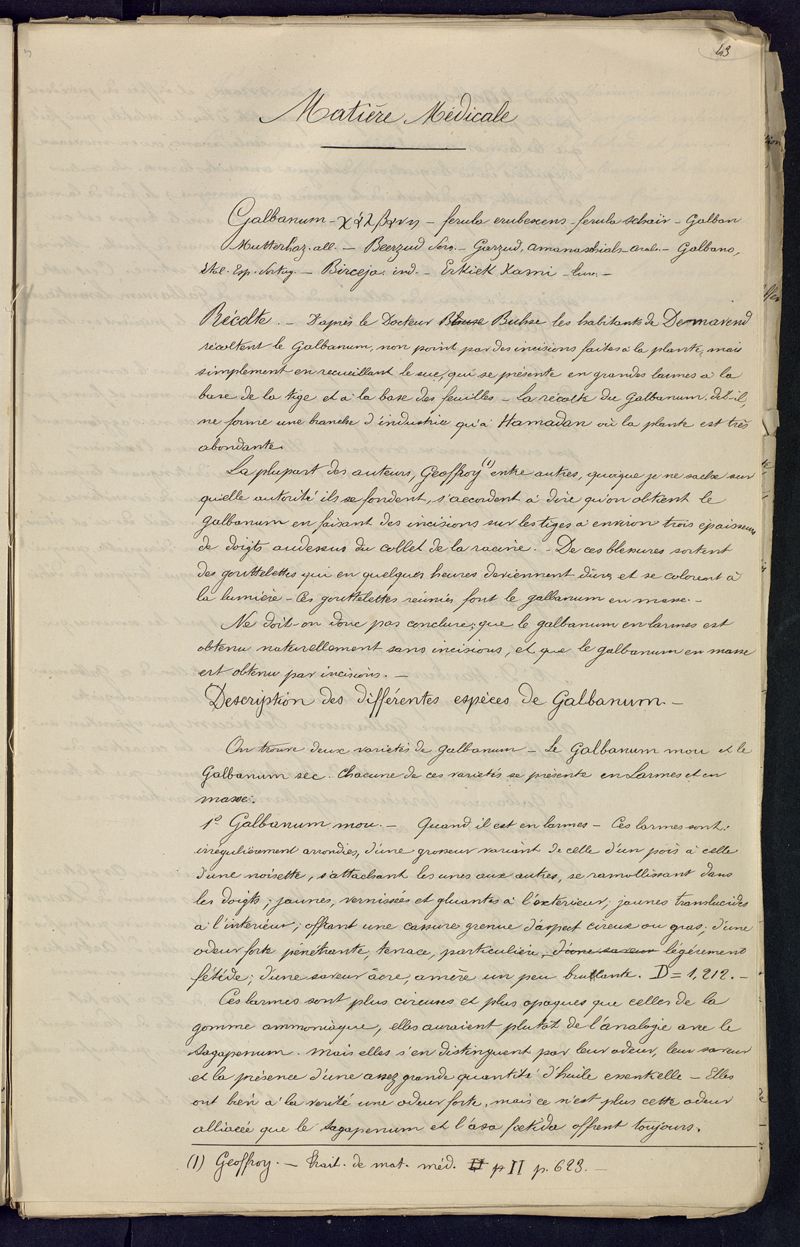 43
Matière Médicale
Galbanum - χάλβανη - ferula erubescens - ferula schaïr - Galban
Mutterharz. all. — Beerzud Pers. — Garzud, amanaschials - arab. — Galbano,
ital. Esp. Portug. — Birceja. ind. — Erkiek Kami - tur. —
Récolte. — D'après le Docteur Buhse les habitants de Demavend
récoltent le Galbanum, non point par des incisions faites à la plante, mais
simplement en recueillant le suc, qui se présente en grandes larmes à la
base de la tige et à la base des feuilles — La récolte du Galbanum, dit-il,
ne forme une branche d'industrie qu'à Hamadan où la plante est très
abondante.
La plupart des auteurs, Geoffroy (1) entre autres, quoique je ne sache sur
quelle autorité ils se fondent, s'accordent à dire qu'on obtient le
galbanum en faisant des incisions sur les tiges à environ trois épaisseurs
de doigts audessus du collet de la racine. — De ces blessures sortent
des gouttelettes qui en quelques heures deviennent dures et se colorent à
la lumière — Ces gouttelettes réunies font le galbanum en masse. —
Ne doit-on donc pas conclure; que le galbanum en larmes est
obtenu naturellement sans incisions, et que le galbanum en masse
est obtenu par incisions. —
Description des différentes espèces de Galbanum. —
On trouve deux variétés de galbanum — Le Galbanum mou et le
Galbanum sec. Chacune de ces variétés se présente en Larmes et en
masse.
1° Galbanum mou. — Quand il est en larmes — Ces larmes sont:
irrégulièrement arrondies, d'une grosseur variant de celle d'un pois à celle
d'une noisette, s'attachant les unes aux autres, se ramollissant dans
les doigts; jaunes, vernissées et gluantes à l'extérieur; jaunes translucides
à l'intérieur; offrant une cassure grenue d'aspect cireux ou gras; d'une
odeur forte pénétrante, tenace, particulière, d'une saveur légèrement
fétide; d'une saveur âcre, amère un peu brulante. D = 1,212. —
Ces larmes sont plus cireuses et plus opaques que celles de la
gomme ammoniaque, elles auraient plutôt de l'analogie avec le
Sagapenum. mais elles s'en distinguent par leur odeur, leur saveur
et la présence d'une assez grande quantité d'huile essentielle — Elles
ont bien à la verité une odeur forte, mais ce n'est plus cette odeur
alliacée que le sagapenum et l'asa foetida offrent toujours.
(1) Geoffroy. — trait. de mat. méd. p II p. 623. —